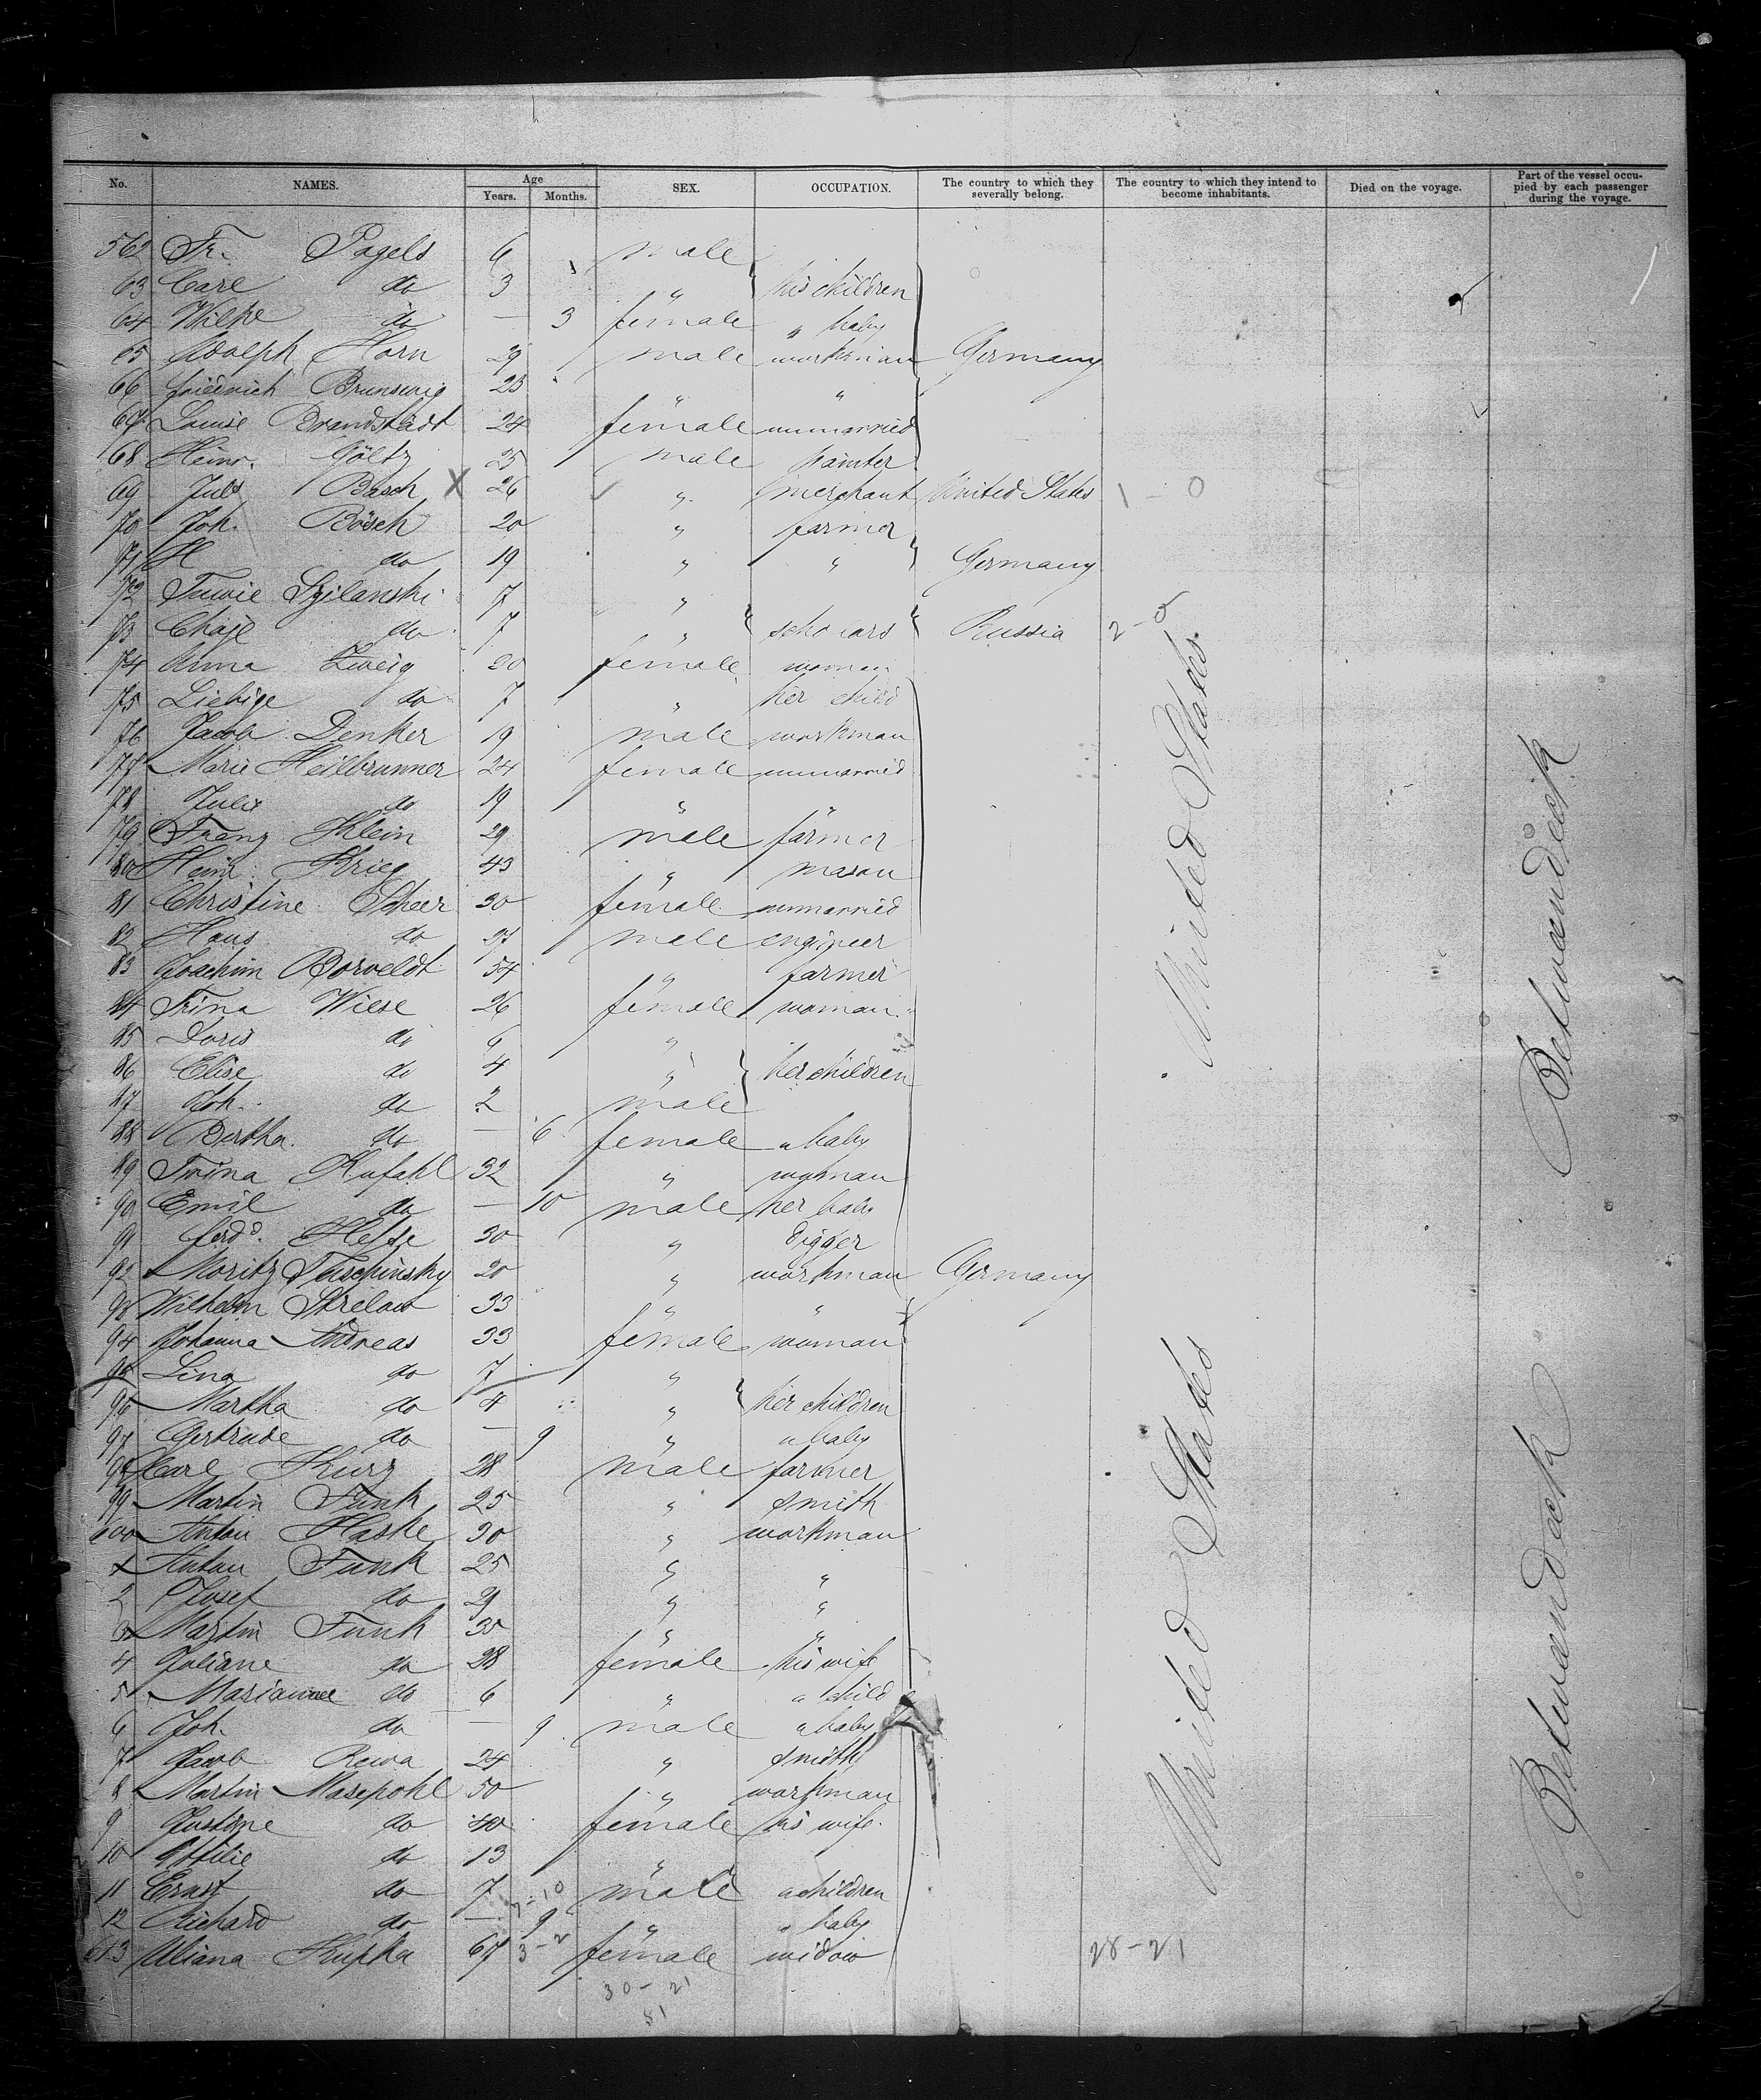 No. NAMES. Age Years. Months. SEX. OCCUPATION. The country to which they severally belong. The country to which they intend to become inhabitants. Died on the voyage. Part of the vessel occupied by each passenger during the voyage.
562 Fr. Pagels 6 male
63 Carl do 3 " his children
64 Wilhe do — 3 female " baby
65 Adolph Horn 29 male workman Germany
66 Friedrich Brunswig 23 " "
67 Louise Brandstädt 24 female unmarried
68 Heinr. Göltz 25 male painter
69 Juls Basch X 26 " merchant United States 1 - 0
70 Joh. Bösch 20 " farmer
71 H do 19 " " Germany
72 Tuwie Szilanski 7 "
73 Chaje do 7 " scholars Russia 2 - 0
74 Anna Zweig 20 female woman
75 Liebige do 7 " her child
76 Jacob Denker 19 male workman
77 Marie Heilbrunner 24 female unmarried
78 Julie do 19 " "
79 Franz Klein 29 male farmer
80 Heinr. Krieg 43 " mason
81 Christine Scheer 30 female unmarried
82 Hans do 27 male engineer
83 Joachim Borveldt 54 " farmer
84 Trina Wiese 26 female woman
85 Doris do 6 "
86 Elise do 4 " her children
87 Joh. do 2 male
88 Bertha do — 6 female " baby
89 Trina Kufahl 32 " woman
90 Emil do — 10 male her baby
91 Ferd. Hesse 30 " digger
92 Moritz 20 " workman Germany
93 Wilhelm Strelow 33 " "
94 Johanna Andreas 33 female woman
95 Lina do 7 "
96 Martha do 4 " her children
97 Gertrude do — 9 " " baby
98 Carl Kurz 28 male farmer
99 Martin Funk 25 " smith
600 Anton Haske 30 " workman
1 Anton Funk 25 " "
2 Josef do 29 " "
3 Martin Funk 35 " "
4 Juliane do 28 female his wife
5 Marianne do 6 " " child
6 Joh. do — 9 male " baby
7 Jacob Rewa 24 " smith
8 Martin Masepohl 50 " workman
9 Justine do 40 female his wife
10 Ottilie do 13 "
11 Ernst do 7 male " children
12 Richard do — 9 " " baby
613 Uliana Kupka 67 3-2 female widow 28-21
30 - 21
51
United States
United States
Betweendeck
Betweendeck